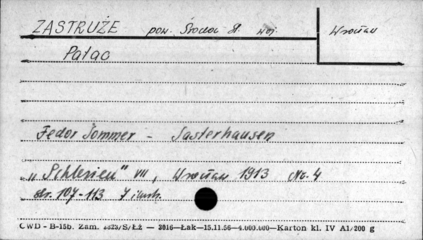 ZASTRUŻE pow. Środa Śl. woj. Wrocław
Pałac
Fedor Sommer - Sasterhausen
"Schlesien" VII, Wrocław 1913 No. 4
str. 107-113 7 ilustr.
CWD - B-15b. Zam. 2823/S/ŁŻ — 2016—Łak—15.11.56—4.000.000—Karton kl. IV A1/200 g